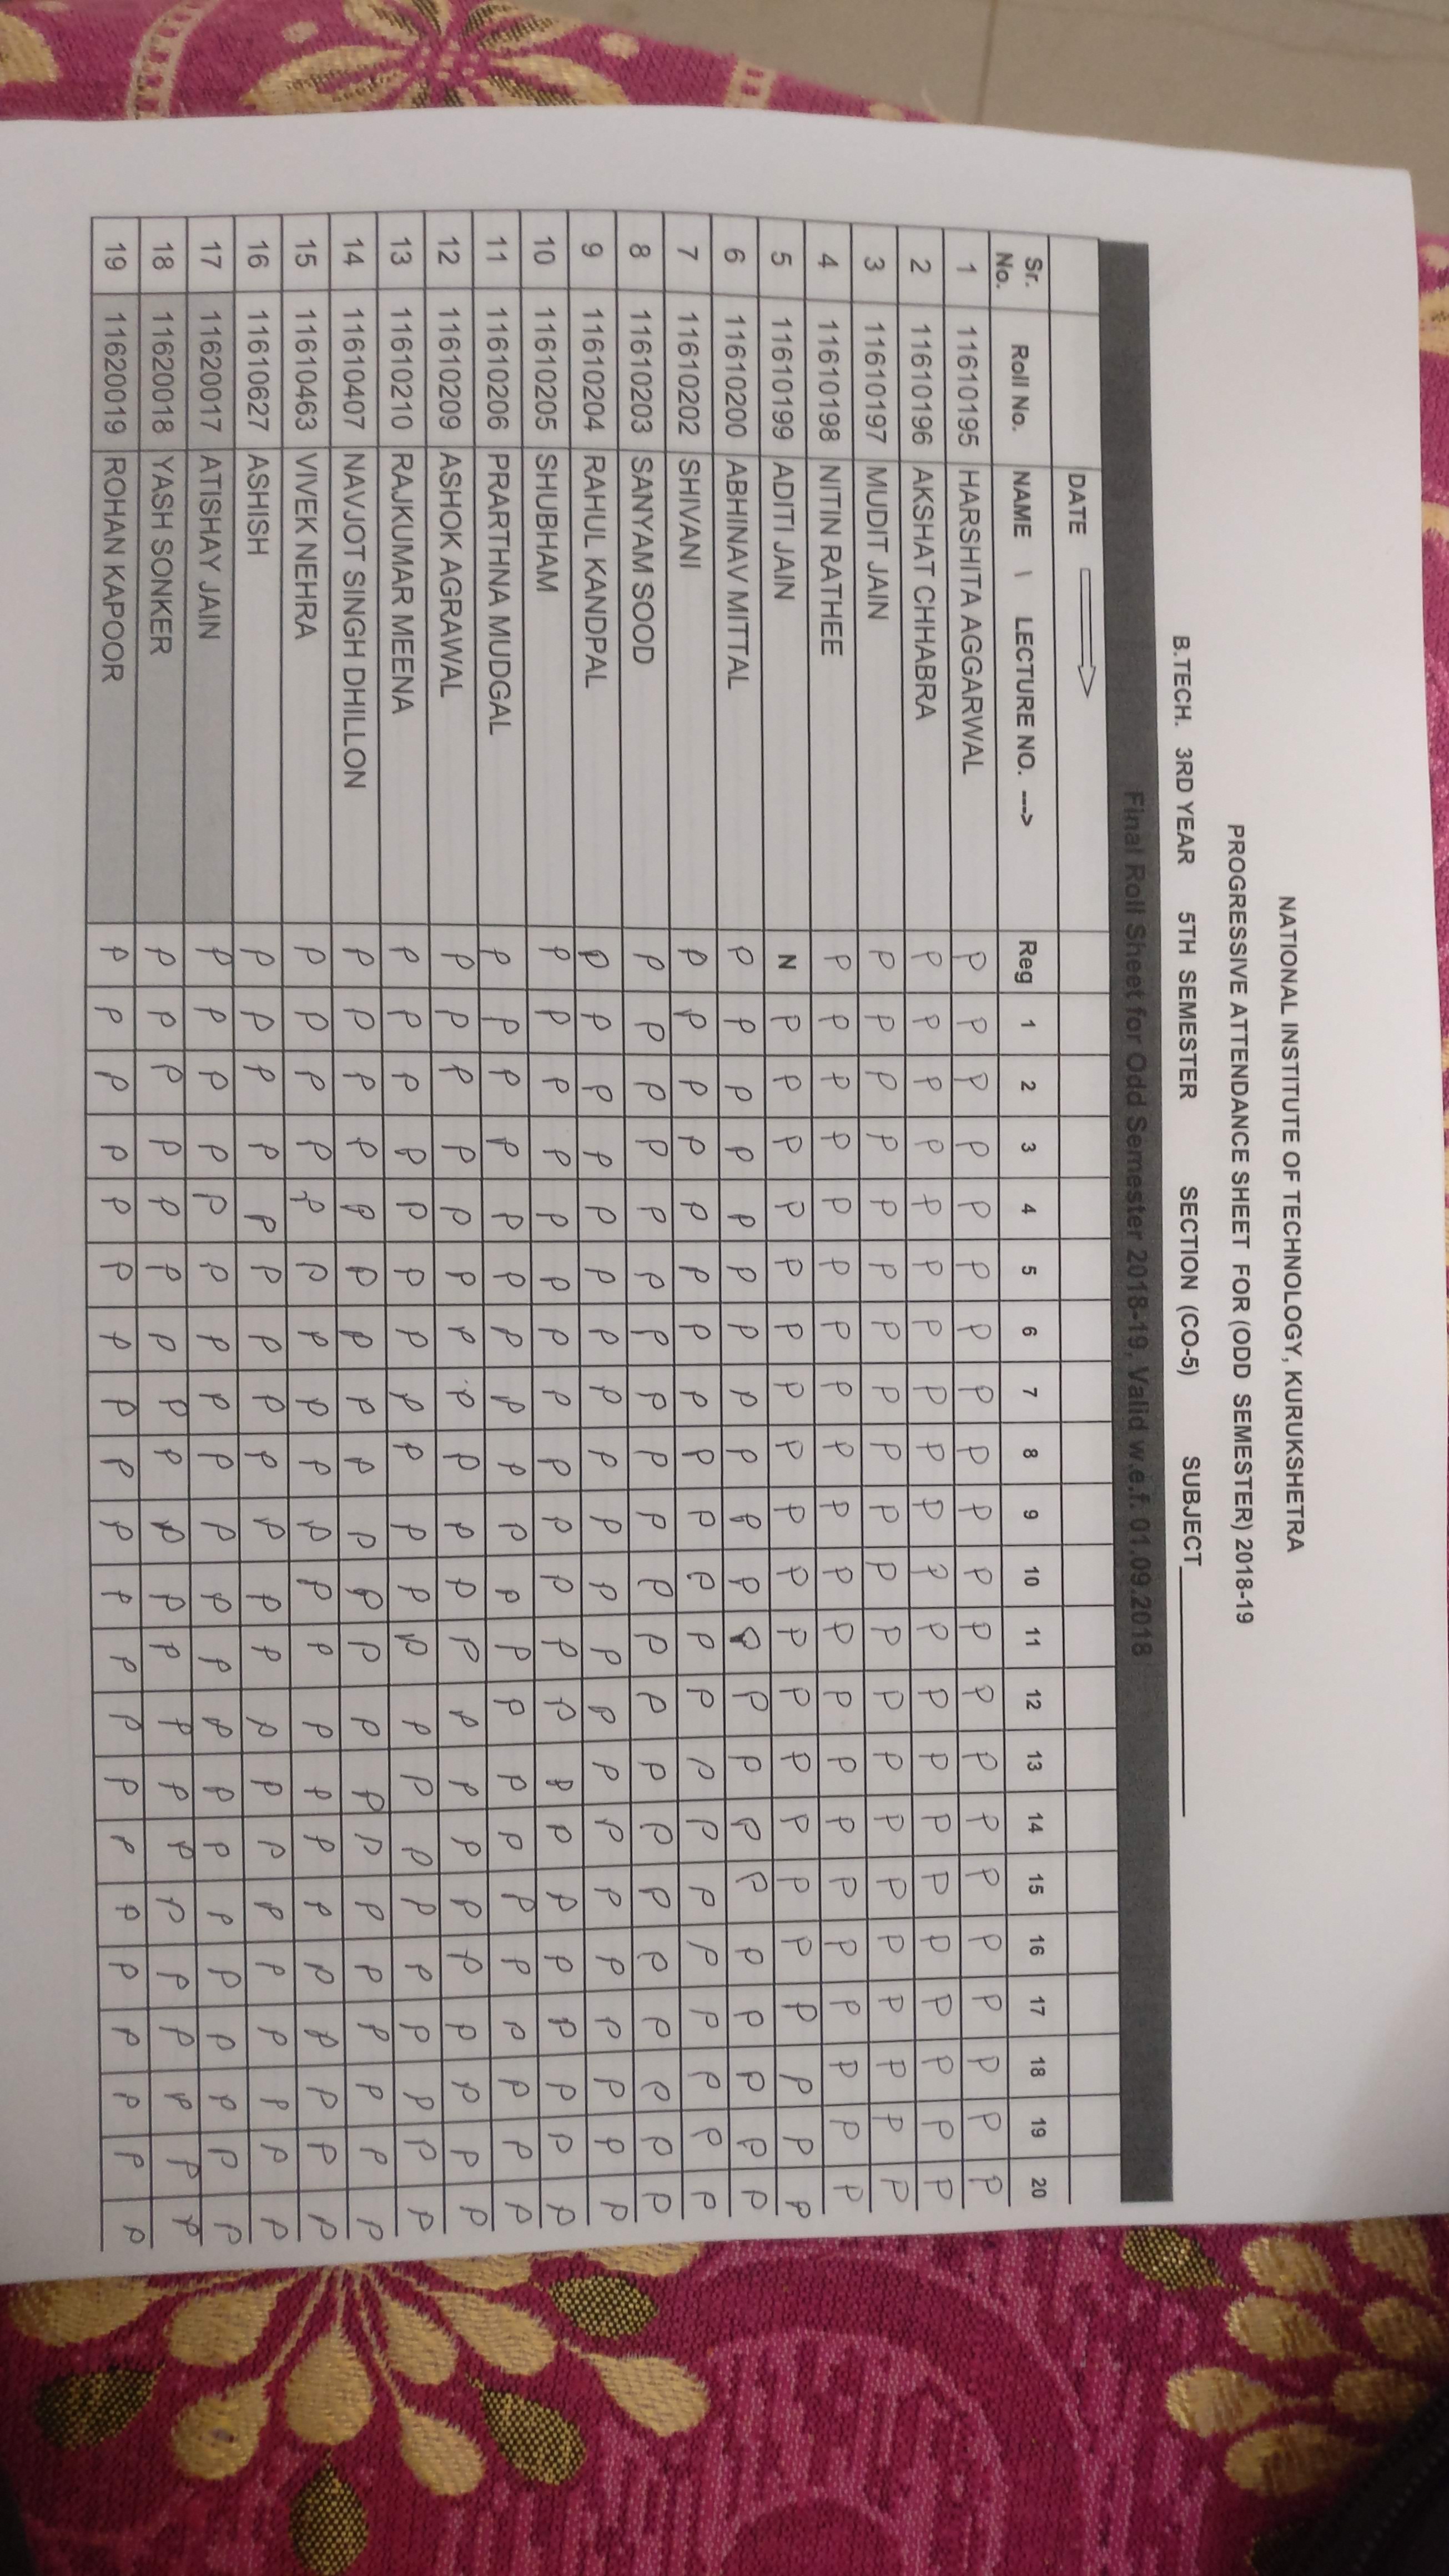 NATIONAL INSTITUTE OF TECHNOLOGY, KURUKSHETRA
PROGRESSIVE ATTENDANCE SHEET FOR (ODD SEMESTER) 2018-19
B.TECH. 3RD YEAR 5TH SEMESTER SECTION (CO-5) SUBJECT_______________
Final Roll Sheet for Odd Semester 2018-19, Valid w.e.f. 01.09.2018
DATE
Sr. No. Roll No. NAME \ LECTURE NO. ---> Reg 1 2 3 4 5 6 7 8 9 10 11 12 13 14 15 16 17 18 19 20
1 11610195 HARSHITA AGGARWAL P P P P P P P P P P P P P P P P P P P P P
2 11610196 AKSHAT CHHABRA P P P P P P P P P P P P P P P P P P P P P
3 11610197 MUDIT JAIN P P P P P P P P P P P P P P P P P P P P P
4 11610198 NITIN RATHEE P P P P P P P P P P P P P P P P P P P P P
5 11610199 ADITI JAIN N P P P P P P P P P P P P P P P P P P P P
6 11610200 ABHINAV MITTAL P P P P P P P P P P P P P P P P P P P P P
7 11610202 SHIVANI P P P P P P P P P P P P P P P P P P P P P
8 11610203 SANYAM SOOD P P P P P P P P P P P P P P P P P P P P P
9 11610204 RAHUL KANDPAL P P P P P P P P P P P P P P P P P P P P P
10 11610205 SHUBHAM P P P P P P P P P P P P P P P P P P P P P
11 11610206 PRARTHNA MUDGAL P P P P P P P P P P P P P P P P P P P P P
12 11610209 ASHOK AGRAWAL P P P P P P P P P P P P P P P P P P P P P
13 11610210 RAJKUMAR MEENA P P P P P P P P P P P P P P P P P P P P P
14 11610407 NAVJOT SINGH DHILLON P P P P P P P P P P P P P P P P P P P P P
15 11610463 VIVEK NEHRA P P P P P P P P P P P P P P P P P P P P P
16 11610627 ASHISH P P P P P P P P P P P P P P P P P P P P P
17 11620017 ATISHAY JAIN P P P P P P P P P P P P P P P P P P P P P
18 11620018 YASH SONKER P P P P P P P P P P P P P P P P P P P P P
19 11620019 ROHAN KAPOOR P P P P P P P P P P P P P P P P P P P P P